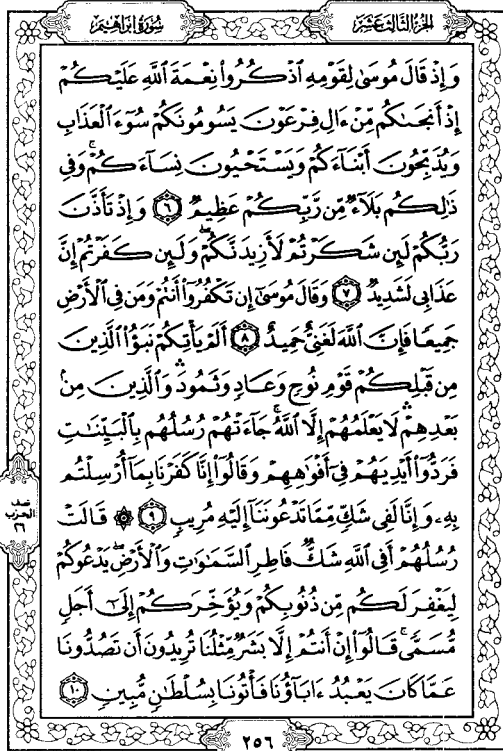 الجزء الثالث عشر
سورة إبراهيم
وَإِذْ قَالَ مُوسَىٰ لِقَوْمِهِ ٱذْكُرُواْ نِعْمَةَ ٱللَّهِ عَلَيْكُمْ
إِذْ أَنجَىٰكُم مِّنْ ءَالِ فِرْعَوْنَ يَسُومُونَكُمْ سُوٓءَ ٱلْعَذَابِ
وَيُذَبِّحُونَ أَبْنَآءَكُمْ وَيَسْتَحْيُونَ نِسَآءَكُمْ ۚ وَفِى
ذَٰلِكُم بَلَآءٌ مِّن رَّبِّكُمْ عَظِيمٌ ٦ وَإِذْ تَأَذَّنَ
رَبُّكُمْ لَئِن شَكَرْتُمْ لَأَزِيدَنَّكُمْ ۖ وَلَئِن كَفَرْتُمْ إِنَّ
عَذَابِى لَشَدِيدٌ ٧ وَقَالَ مُوسَىٰٓ إِن تَكْفُرُوٓاْ أَنتُمْ وَمَن فِى ٱلْأَرْضِ
جَمِيعًا فَإِنَّ ٱللَّهَ لَغَنِىٌّ حَمِيدٌ ٨ أَلَمْ يَأْتِكُمْ نَبَؤُاْ ٱلَّذِينَ
مِن قَبْلِكُمْ قَوْمِ نُوحٍ وَعَادٍ وَثَمُودَ ۛ وَٱلَّذِينَ مِنۢ
بَعْدِهِمْ ۛ لَا يَعْلَمُهُمْ إِلَّا ٱللَّهُ ۚ جَآءَتْهُمْ رُسُلُهُم بِٱلْبَيِّنَٰتِ
فَرَدُّوٓاْ أَيْدِيَهُمْ فِىٓ أَفْوَٰهِهِمْ وَقَالُوٓاْ إِنَّا كَفَرْنَا بِمَآ أُرْسِلْتُم
بِهِۦ وَإِنَّا لَفِى شَكٍّ مِّمَّا تَدْعُونَنَآ إِلَيْهِ مُرِيبٍ ٩ ۞ قَالَتْ
نصف
الحزب
٢٦
رُسُلُهُمْ أَفِى ٱللَّهِ شَكٌّ فَاطِرِ ٱلسَّمَٰوَٰتِ وَٱلْأَرْضِ ۖ يَدْعُوكُمْ
لِيَغْفِرَ لَكُم مِّن ذُنُوبِكُمْ وَيُؤَخِّرَكُمْ إِلَىٰٓ أَجَلٍ
مُّسَمًّى ۚ قَالُوٓاْ إِنْ أَنتُمْ إِلَّا بَشَرٌ مِّثْلُنَا تُرِيدُونَ أَن تَصُدُّونَا
عَمَّا كَانَ يَعْبُدُ ءَابَآؤُنَا فَأْتُونَا بِسُلْطَٰنٍ مُّبِينٍ ١٠
٢٥٦